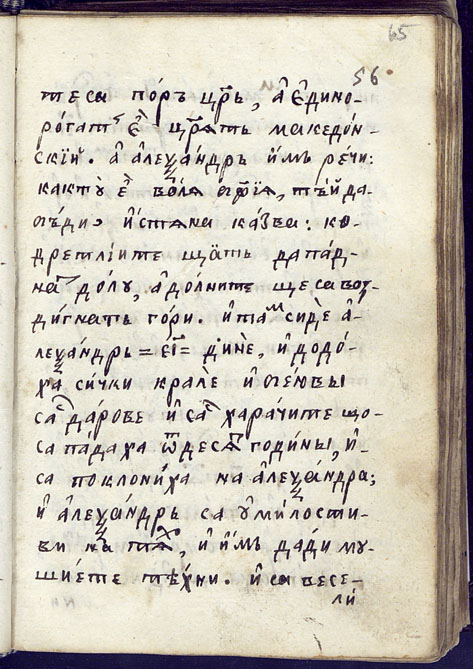 65
56.
теса по́ръ цр҃ь, а҆ є҆ди́но-
рогатъ е҆ цр҃ятъ македо́н-
скїй. А҆ алеѯа́ндръ и҆мъ речѝ:
какту̀ е҆ во́ля бж҃їѧ, тъ́й да
бъ́ди, и҆стина ка́зва: ко-
дретлїите щатъ да па́д-
натъ до́лу, а до́лните ще са воз-
ди́гнатъ го́ри. И҆ там си́де а҆-
леѯа́ндръ = еі҃ = ди́не, и҆ додо́-
ха си́чки кралѐ и҆
са дарове и҆ са хара́чите що-
са па́даха ѿ десет годи́ны, и҆-
са поклони́ха на а҆леѯа́ндра;
и҆ а҆леѯа́ндръ са ѹ҆ми́лости-
ви на тѧх, и҆ и҆́мъ дади му-
шїете те́хни. И҆ са весе-
ли́